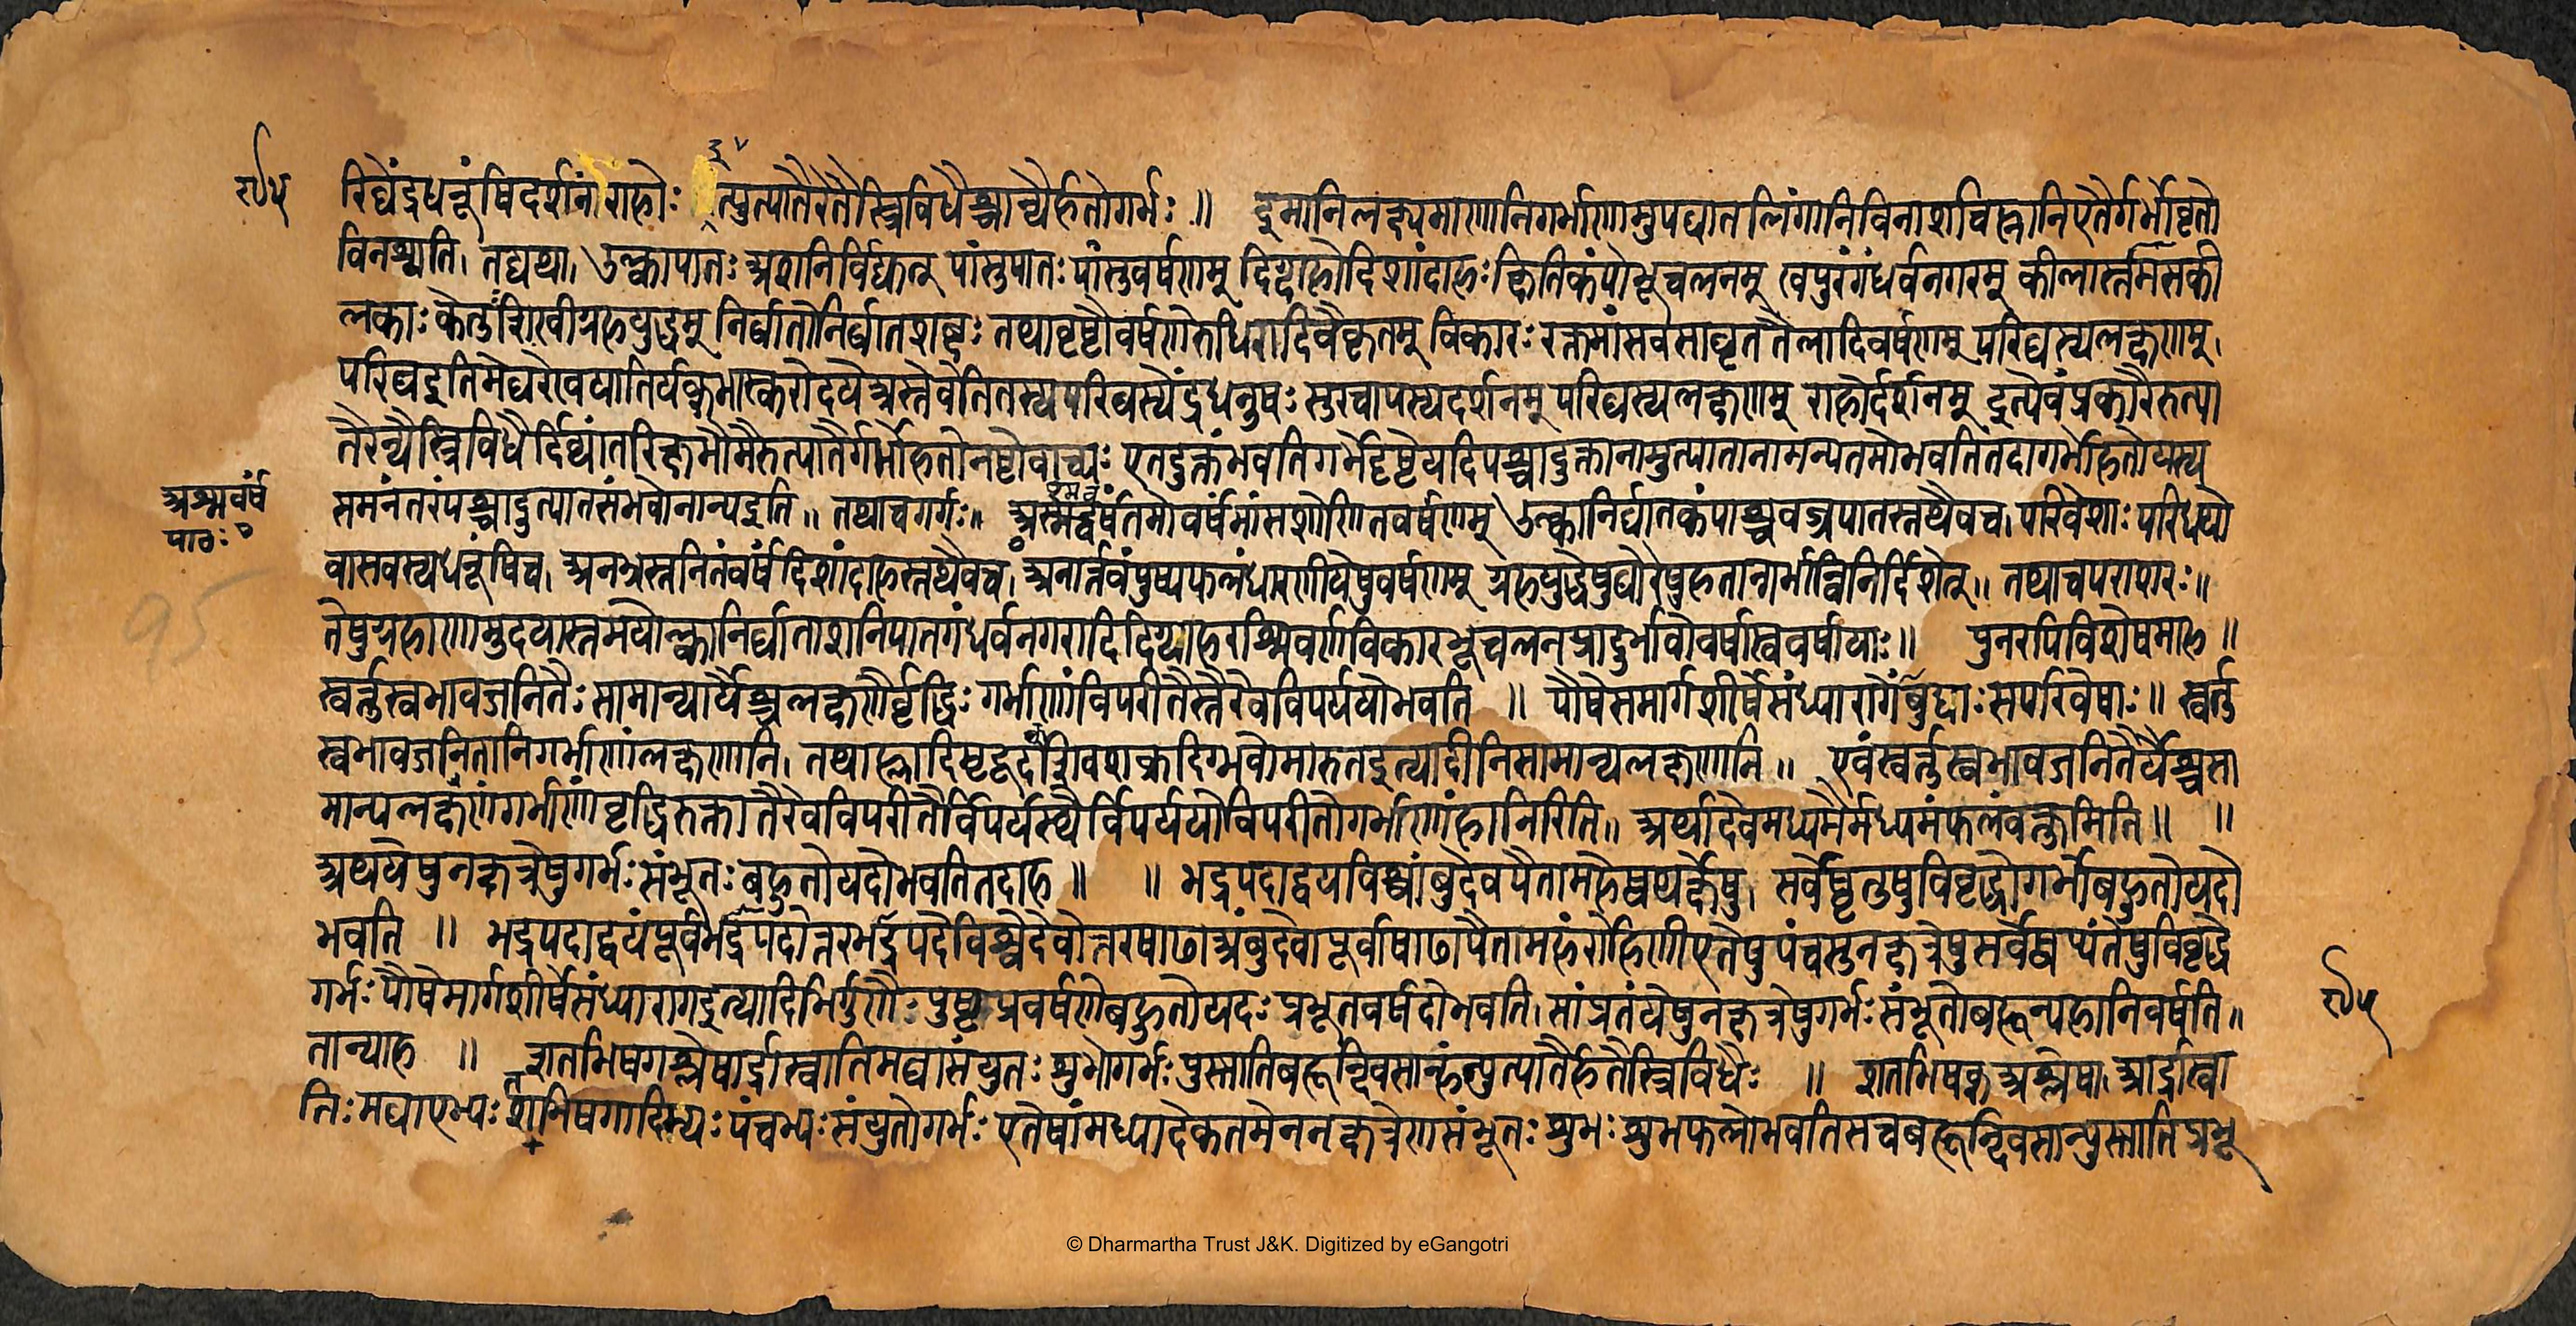 ९५ रिघेंद्रधनूंषिदर्शनंराहोः इत्युत्पातैरेतैस्त्रिविधैश्चान्यैर्हतोगर्भः ॥ इमानिलक्ष्यमाणानिगर्भाणामुपघातलिंगानिविनाशचिह्नानिएतैर्गर्भोवृतो
विनश्यति। तद्यथा। उल्कापातः अशनिर्विद्युत् पांसुपातः पांसुवर्षणम् दिग्दाहोदिशांदाहः क्षितिकंपोभूचलनम् खपुरंगंधर्वनगरम् कीलास्तमिसकी
लकाः केतुःशिखीग्रहयुद्धम् निर्घातोनिर्घातशब्दः तथावृष्टौवर्षणेरुधिरादिवैकृतम् विकारः रक्तमांसवसाघृततैलादिवर्षणम् परिघस्यलक्षणम्।
परिघइतिमेघरेखयातिर्यक्भास्करोदयेअस्तेवेतितस्यपरिघस्येंद्रधनुषः सुरचापस्यदर्शनम् परिघस्यलक्षणम् राहोर्दर्शनम् इत्येवंप्रकारैरुत्पा
तैरन्यैस्त्रिविधैर्दिव्यांतरिक्षभौमैरुत्पातैर्गर्भोहतोनष्टोवाच्यः एतदुक्तंभवतिगर्भेदृष्टेयदिपश्चादुक्तानामुत्पातानामन्यतमोभवतितदागर्भोहतोयस्य
समनंतरंपश्चादुत्पातसंभवोनान्यइति॥ तथाचगर्गः॥ अस्मद्वर्षतमोवर्षमांसशोणितवर्षणम् उल्कानिर्घातकंपाश्चवज्रपातस्तथैवच। परिवेशाः परिधयो
अश्मवर्ष
पाठः १
वासवस्यधनूंषिच। अनभ्रस्तनितंवर्षंदिशांदाहस्तथैवच। अनार्तवंपुष्पफलंधारणीयेषुवर्षणम् ग्रहयुद्धेषुघोरेषुहतान्गर्भान्विनिर्दिशेत्॥ तथाचपराशरः॥
तेषुग्रहाणामुदयास्तमयोल्कानिर्घाताशनिपातगंधर्वनगरादिदिग्दाहरश्मिवर्णविकारभूचलनप्रादुर्भावोवर्षास्ववर्षायाः॥ पुनरपिविशेषमाह॥
स्वर्तुस्वभावजनितैः सामान्यार्यैश्चलक्षणैर्वृद्धिः गर्भाणांविपरीतैस्तैरेवविपर्ययोभवति ॥ पौषेसमार्गशीर्षेसंध्यारागोंबुदाः सपरिवेषाः॥ स्वर्तु
स्वभावजनितानिगर्भाणांलक्षणानि। तथाह्लादिमृदूदक्शिवशक्रदिग्भवोमारुतइत्यादीनिसामान्यलक्षणानि॥ एवंस्वर्तुस्वभावजनितैर्यैश्चसा
मान्यलक्षणैःगर्भाणांवृद्धिरुक्तातैरेवविपरीतैर्विपर्यस्थैर्विपर्ययोविपरीतोगर्भाणांहानिरिति॥ अर्थादेवमध्यमैर्मध्यमंफलंवक्तुमिति॥ ॥
अथयेषुनक्षत्रेषुगर्भः संभूतः बहुतोयदोभवतितदाह॥ ॥ भद्रपदाद्वयविश्वांबुदैवपैतामहेष्वथर्क्षेषु। सर्वेष्वृतुषुविवृद्धोगर्भोबहुतोयदो
भवति ॥ भद्रपदाद्वयंपूर्वभद्रपदोत्तरभद्रपदेविश्वेदेवोत्तरषाढाअंबुदेवापूर्वाषाढापैतामहंरोहिणीएतेषुपंचसुनक्षत्रेषुसर्वेष्वप्यंतेषुविवृद्धो
गर्भः पौषेमार्गशीर्षेसंध्यारागइत्यादिभिर्गुणैः पुष्टाप्रवर्षणेबहुतोयदः प्रभूतवर्षदोभवति। सांप्रतंयेषुनक्षत्रेषुगर्भः संभूतोबहून्यहानिवर्षति॥
९५
तान्याह ॥ शतभिषगश्लेषार्द्रास्वातिमघासंयुतः शुभोगर्भः पुस्नातिबहून्दिवसान्हंत्युत्पातैर्हतैस्त्रिविधैः ॥ शतभिषक् अश्लेषा आर्द्रास्वा
तिः मघाएभ्यः शतभिषगादिभ्यः पंचभ्यः संयुतोगर्भः एतेषांमध्यादेकतमेननक्षत्रेणसंभूतः शुभः शुभफलोभवतिसचबहून्दिवसान्पुस्नातिप्रभू
95
© Dharmartha Trust J&K. Digitized by eGangotri